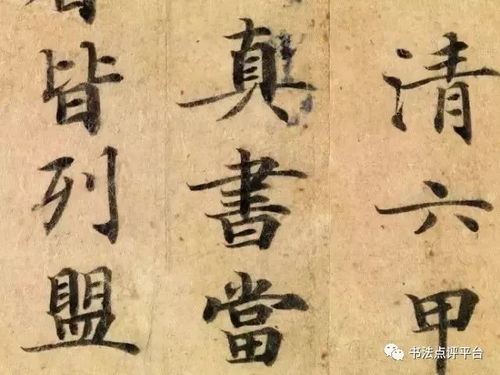 清六甲
真書當
皆列盟
书法点评平台